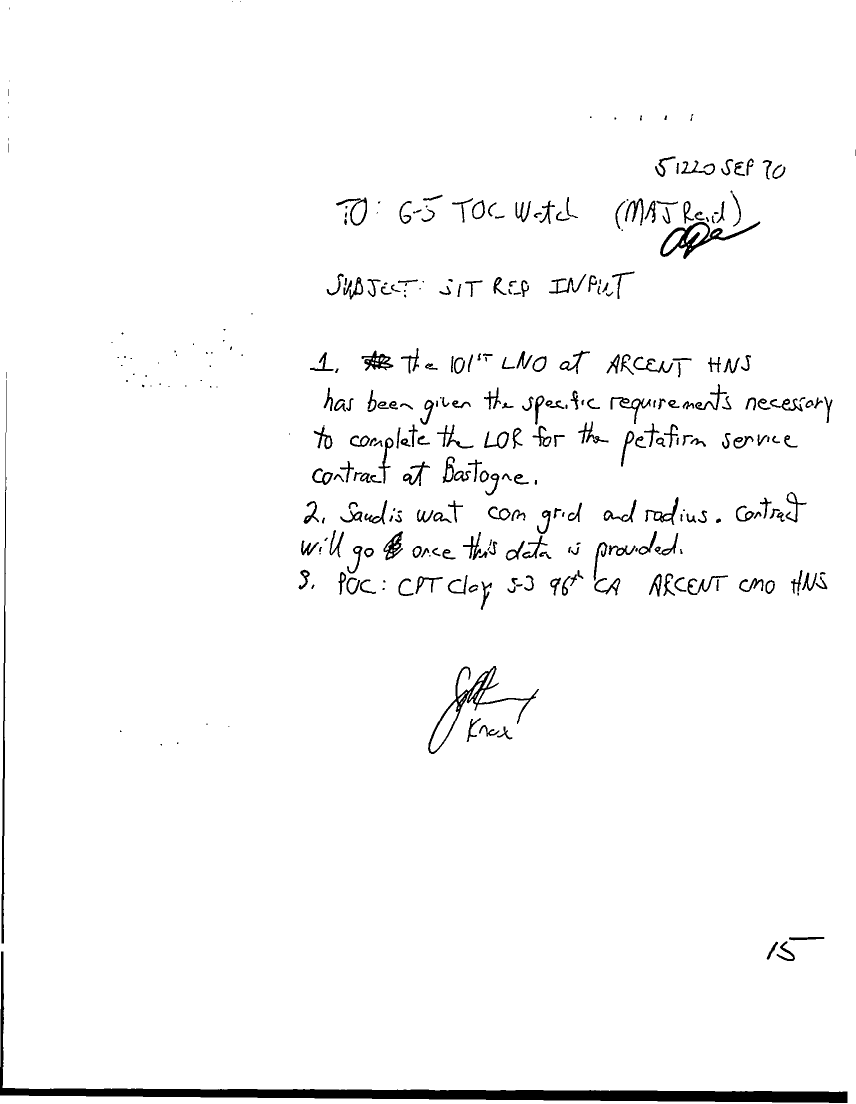 51220 SEP 90
TO: G-5 TOC Watch (MAJ Reid)
SUBJECT: SIT REP INPUT
1. the 101ST LNO at ARCENT HNS
has been given the specific requirements necessary
to complete the LOR for the petafirm service
contract at Bastogne.
2. Saudis want com grid and radius. Contract
will go once this data is provided.
3. POC: CPT Clay S-3 96th CA ARCENT CMO HNS
Knox
15